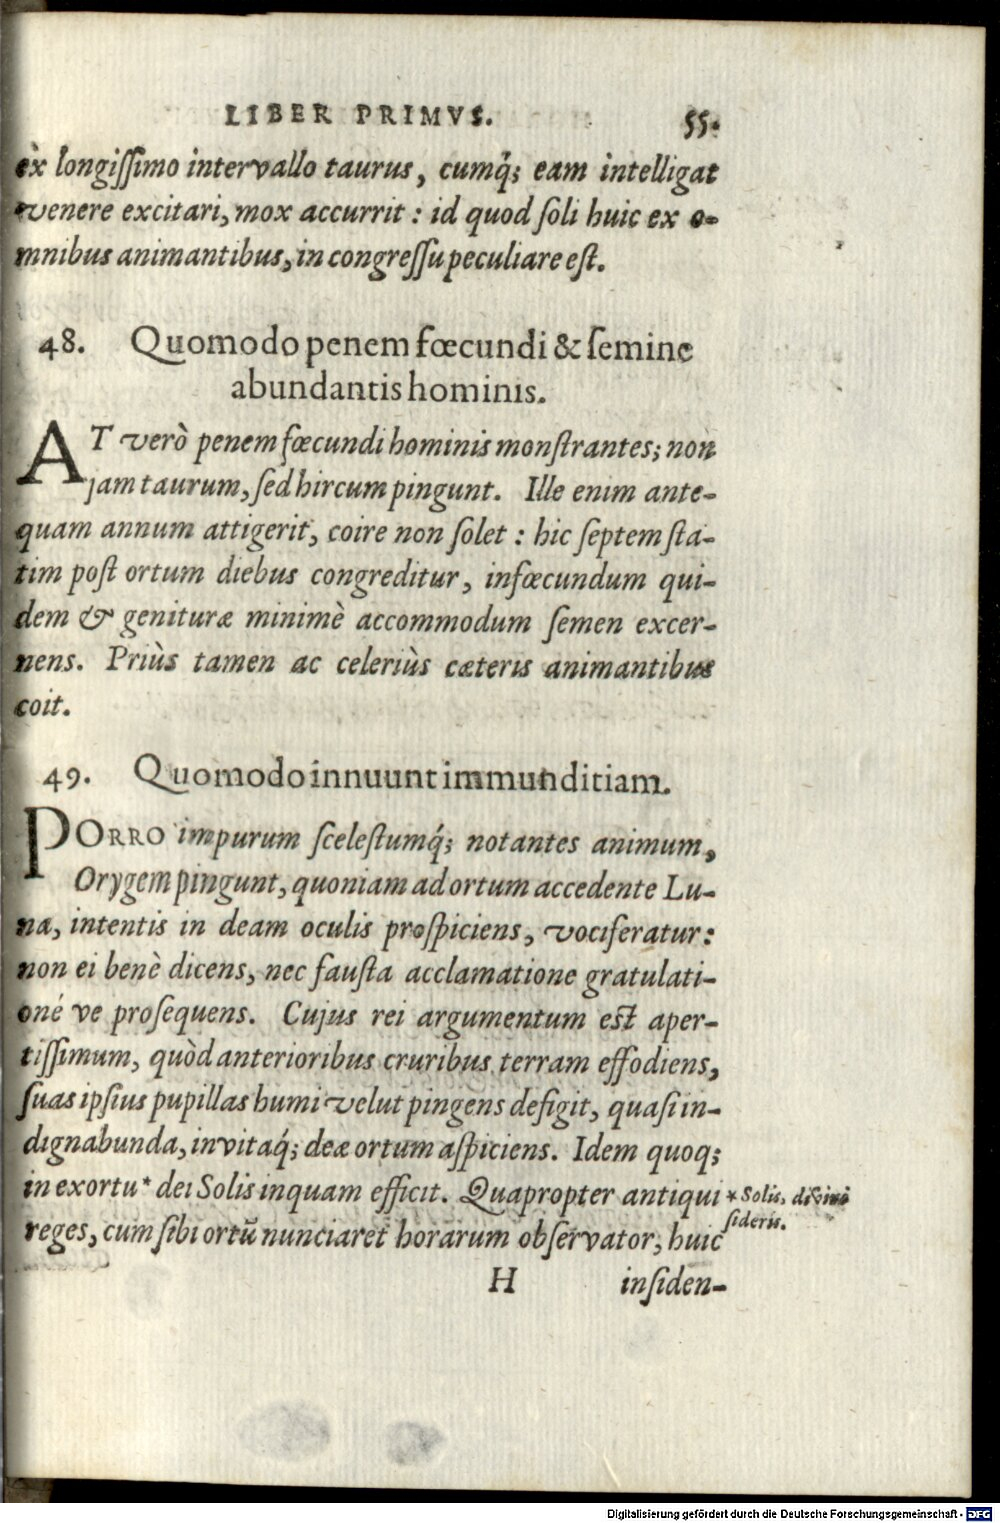 LIBER PRIMVS. 55.
ex longißimo intervallo taurus, cumq́; eam intelligat
venere excitari, mox accurrit : id quod ſoli huic ex o-
mnibus animantibus, in congreſſu peculiare eſt.
48. Quomodo penem fœcundi & ſemine
abundantis hominis.
AT verò penem fœcundi hominis monſtrantes; non
jam taurum, ſed hircum pingunt. Ille enim ante-
quam annum attigerit, coire non ſolet : hic ſeptem ſta-
tim poſt ortum diebus congreditur, infœcundum qui-
dem & genituræ minimè accommodum ſemen excer-
nens. Priùs tamen ac celeriùs cæteris animantibus
coit.
49. Quomodo innuunt immunditiam.
PORRO impurum ſceleſtumq́; notantes animum,
Orygem pingunt, quoniam ad ortum accedente Lu-
na, intentis in deam oculis proſpiciens, vociferatur:
non ei benè dicens, nec fauſta acclamatione gratulati-
oné ve proſequens. Cujus rei argumentum eſt aper-
tiſſimum, quòd anterioribus cruribus terram effodiens,
ſuas ipſius pupillas humi velut pingens defigit, quaſi in-
dignabunda, invitaq́; deæ ortum aſpiciens. Idem quoq;
in exortu * dei Solis inquam efficit. Quapropter antiqui
* Solis, divini
ſideris.
reges, cum ſibi ortũ nunciaret horarum obſervator, huic
H inſiden-
Digitalisierung gefördert durch die Deutsche Forschungsgemeinschaft - DFG